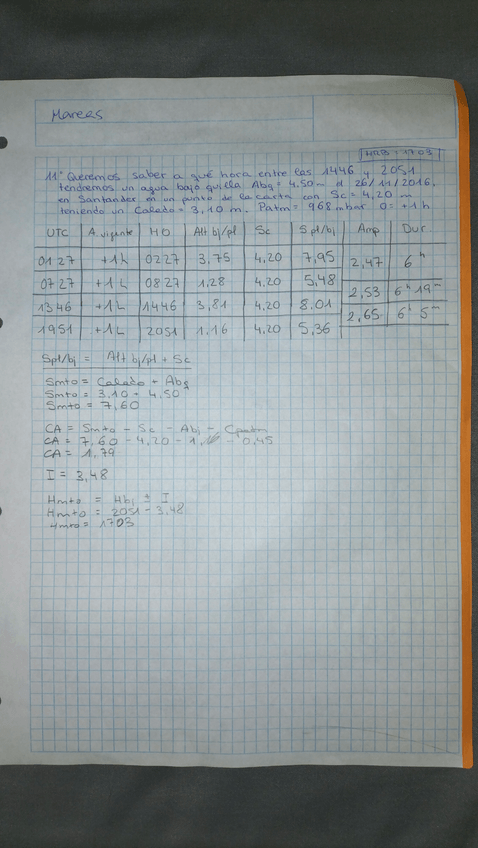 Mareas
HRB: 1703
11º Queremos saber a qué hora entre las 1446 y 2051
tendremos un agua bajo quilla Abq = 4.50 m el 26/11/2016,
en Santander en un punto de la carta con Sc = 4,20 m
teniendo un Calado = 3,10 m. Patm = 968 mbar O = +1 h
UTC A. vigente HO Alt bj/pl Sc S pl/bj Amp Dur.
0127 +1h 0227 3.75 4,20 7,95
2,47 6h
0727 +1h 0827 1.28 4.20 5,48
2,53 6h 19m
1346 +1h 1446 3,81 4,20 8.01
2,65 6h 5m
1951 +1h 2051 1.16 4,20 5,36
Spl/bj = Alt bj/pl + Sc
Smto = Calado + Abq
Smto = 3.10 + 4.50
Smto = 7,60
CA = Smto - Sc - Abj - Cpatm
CA = 7,60 - 4,20 - 1, - 0,45
CA = 1,79
I = 3,48
Hmto = Hbj ± I
Hmto = 2051 - 3,48
Hmto = 1703